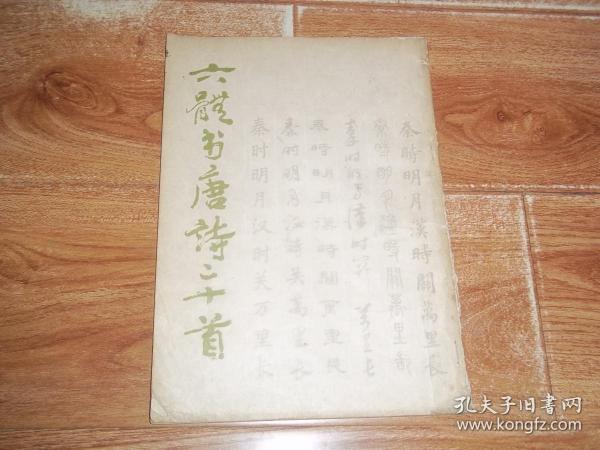 六體书唐詩二十首
秦時明月漢時關萬里長
秦時明月漢時關萬里長
秦時明月漢時關萬里長
秦时明月汉时关万里长
孔夫子旧书网
www.kongfz.com